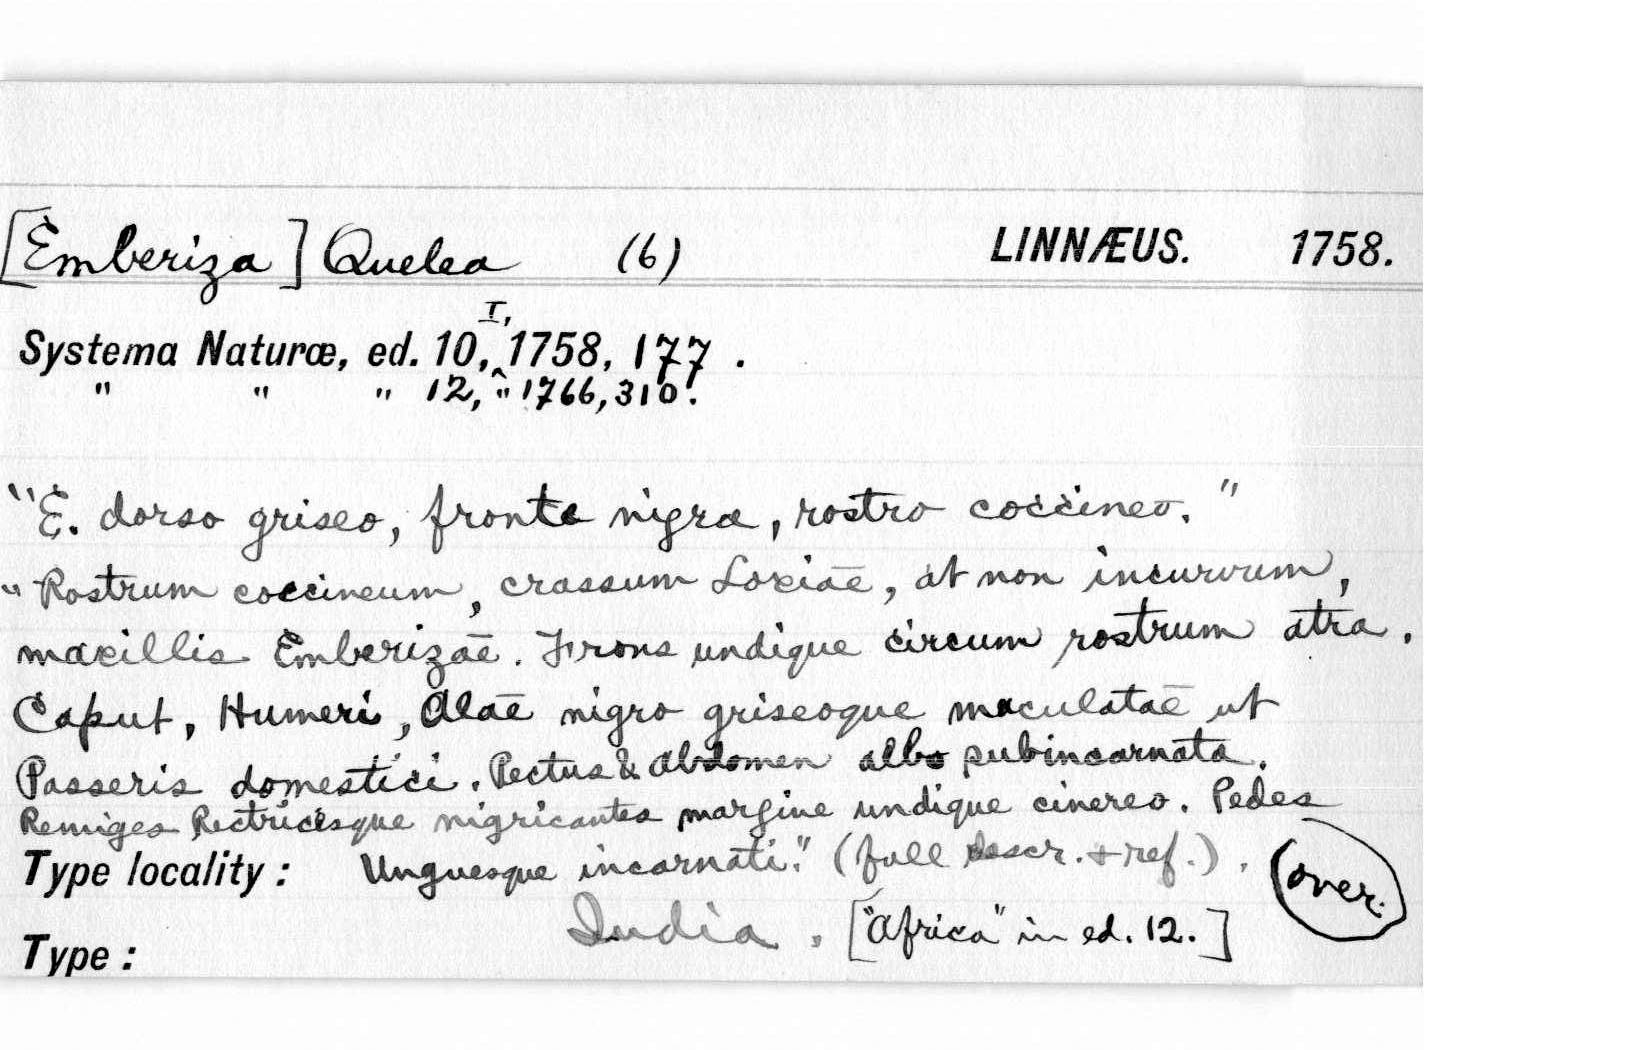 [Emberiza] Quelea (6) LINNÆUS. 1758.
Systema Naturæ, ed. 10, I, 1758, 177.
" " " 12, " 1766, 310.
"E. dorso griseo, fronte nigra, rostro coccineo."
"Rostrum coccineum, crassum Loxiae, at non incurvum,
maxillis Emberizae. Frons undique circum rostrum atra.
Caput, Humeri, Alae nigro griseoque maculatae ut
Passeris domestici. Pectus & Abdomen albo subincarnata.
Remiges Rectricesque nigricantes margine undique cinereo. Pedes
Type locality: Unguesque incarnati." (full descr. + ref.). (over.)
India. ["Africa" in ed. 12.]
Type: